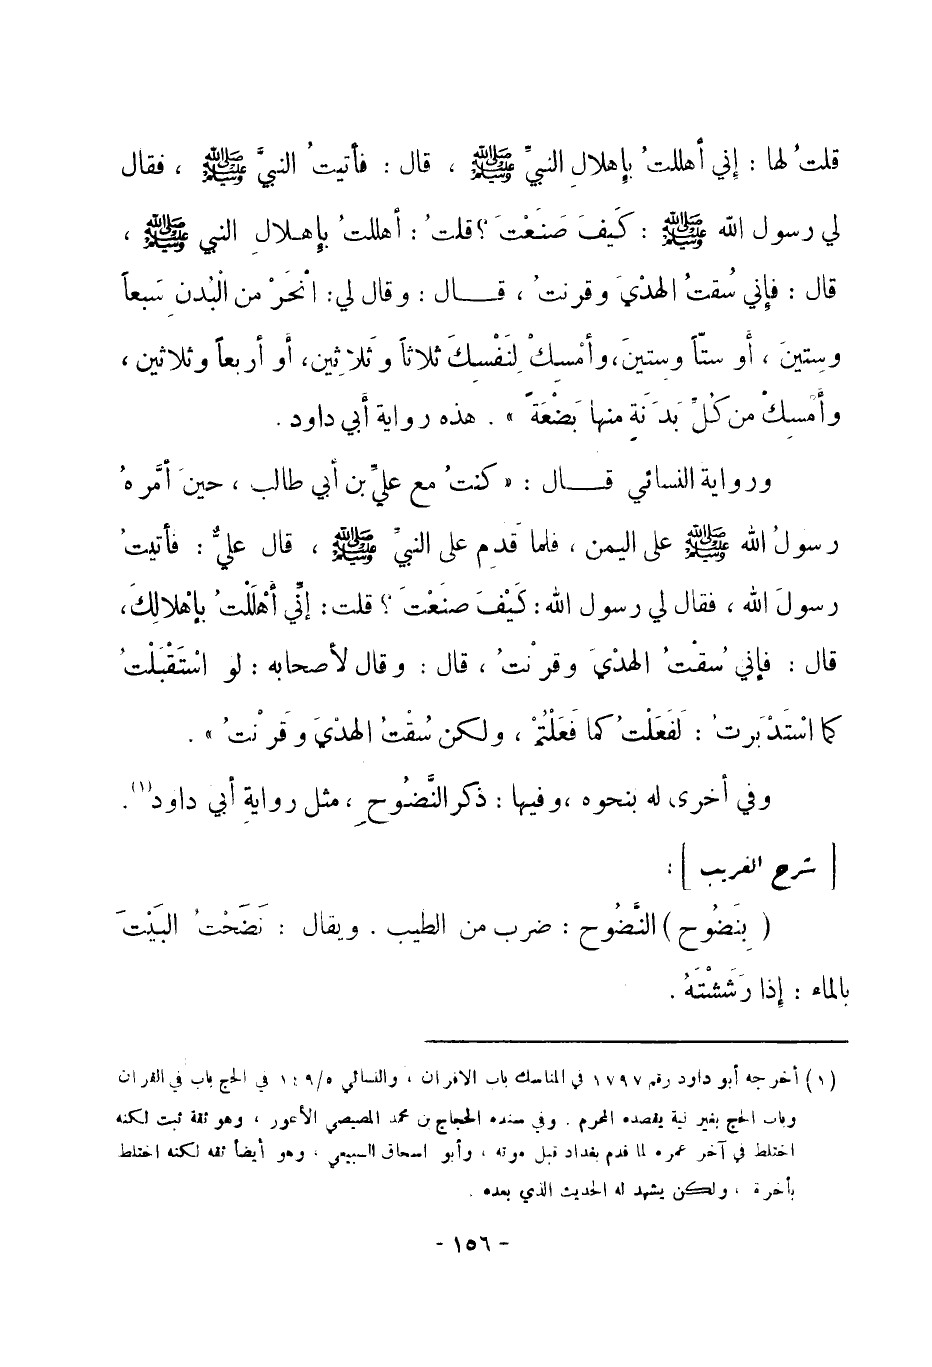 قلتُ لها : إني أهللتُ بإهلالِ النبيِّ ﷺ ، قال : فأتيتُ النبيَّ ﷺ ، فقال
لي رسول الله ﷺ : كَيفَ صَنَعْتَ ؟ قلتُ : أهللتُ بإهلالِ النبي ﷺ ،
قال : فإني سُقتُ الهدْيَ وقرنتُ ، قــال : وقال لي : انْحَرْ من الْبُدنِ سَبعاً
وسِتينَ ، أو ستّاً وستينَ ، وأمْسِكْ لِنَفْسِكَ ثلاثاً وَثلاثِين، أو أربعاً وثلاثين ،
وأمْسِكْ من كُلِّ بَدَنَةٍ منها بَضْعَةً » . هذه رواية أبي داود .
ورواية النسائي قــال : « كنتُ مع عليِّ بن أبي طالب ، حينَ أمَّرهُ
رسولُ الله ﷺ على اليمن ، فلما قَدِم على النبيِّ ﷺ ، قال عليٌّ : فأتيتُ
رسولَ الله ، فقال لي رسول الله : كَيْفَ صنَعْتَ ؟ قلت : إنِّي أهْلَلْتُ بإهْلالِكَ،
قال : فإني سُقْتُ الهدْيَ وقرنْتُ ، قال : وقال لأصحابه : لو اسْتَقْبَلْتُ
كما اسْتَدْبَرتُ : لَفعَلْتُ كما فَعَلْتُمْ ، ولكن سُقْتُ الهدْيَ وَقرنْتُ » .
وفي أخرى له بنحوه ، وفيها : ذكر النَّضُوحِ ، مثل روايةِ أبي داود(١) .
[ شرح الغريب ] :
( بِنَضُوح ) النَّضُوح : ضرب من الطيب . ويقال : نَضَحْتُ البَيْتَ
بالماء : إذا رَشَشْتَهُ .
(١) أخرجه أبو داود رقم ١٧٩٧ في المناسك باب الاقران ، والنسائي ٥/١٤٩ في الحج باب في القران
وباب الحج بغير نية يقصده المحرم . وفي سنده الحجاج بن محمد المصيصي الأعور ، وهو ثقة ثبت لكنه
اختلط في آخر عمره لما قدم بغداد قبل موته ، وأبو اسحاق السبيعي ، وهو أيضاً ثقة لكنه اختلط
بأخرة ، ولكن يشهد له الحديث الذي بعده .
- ١٥٦ -